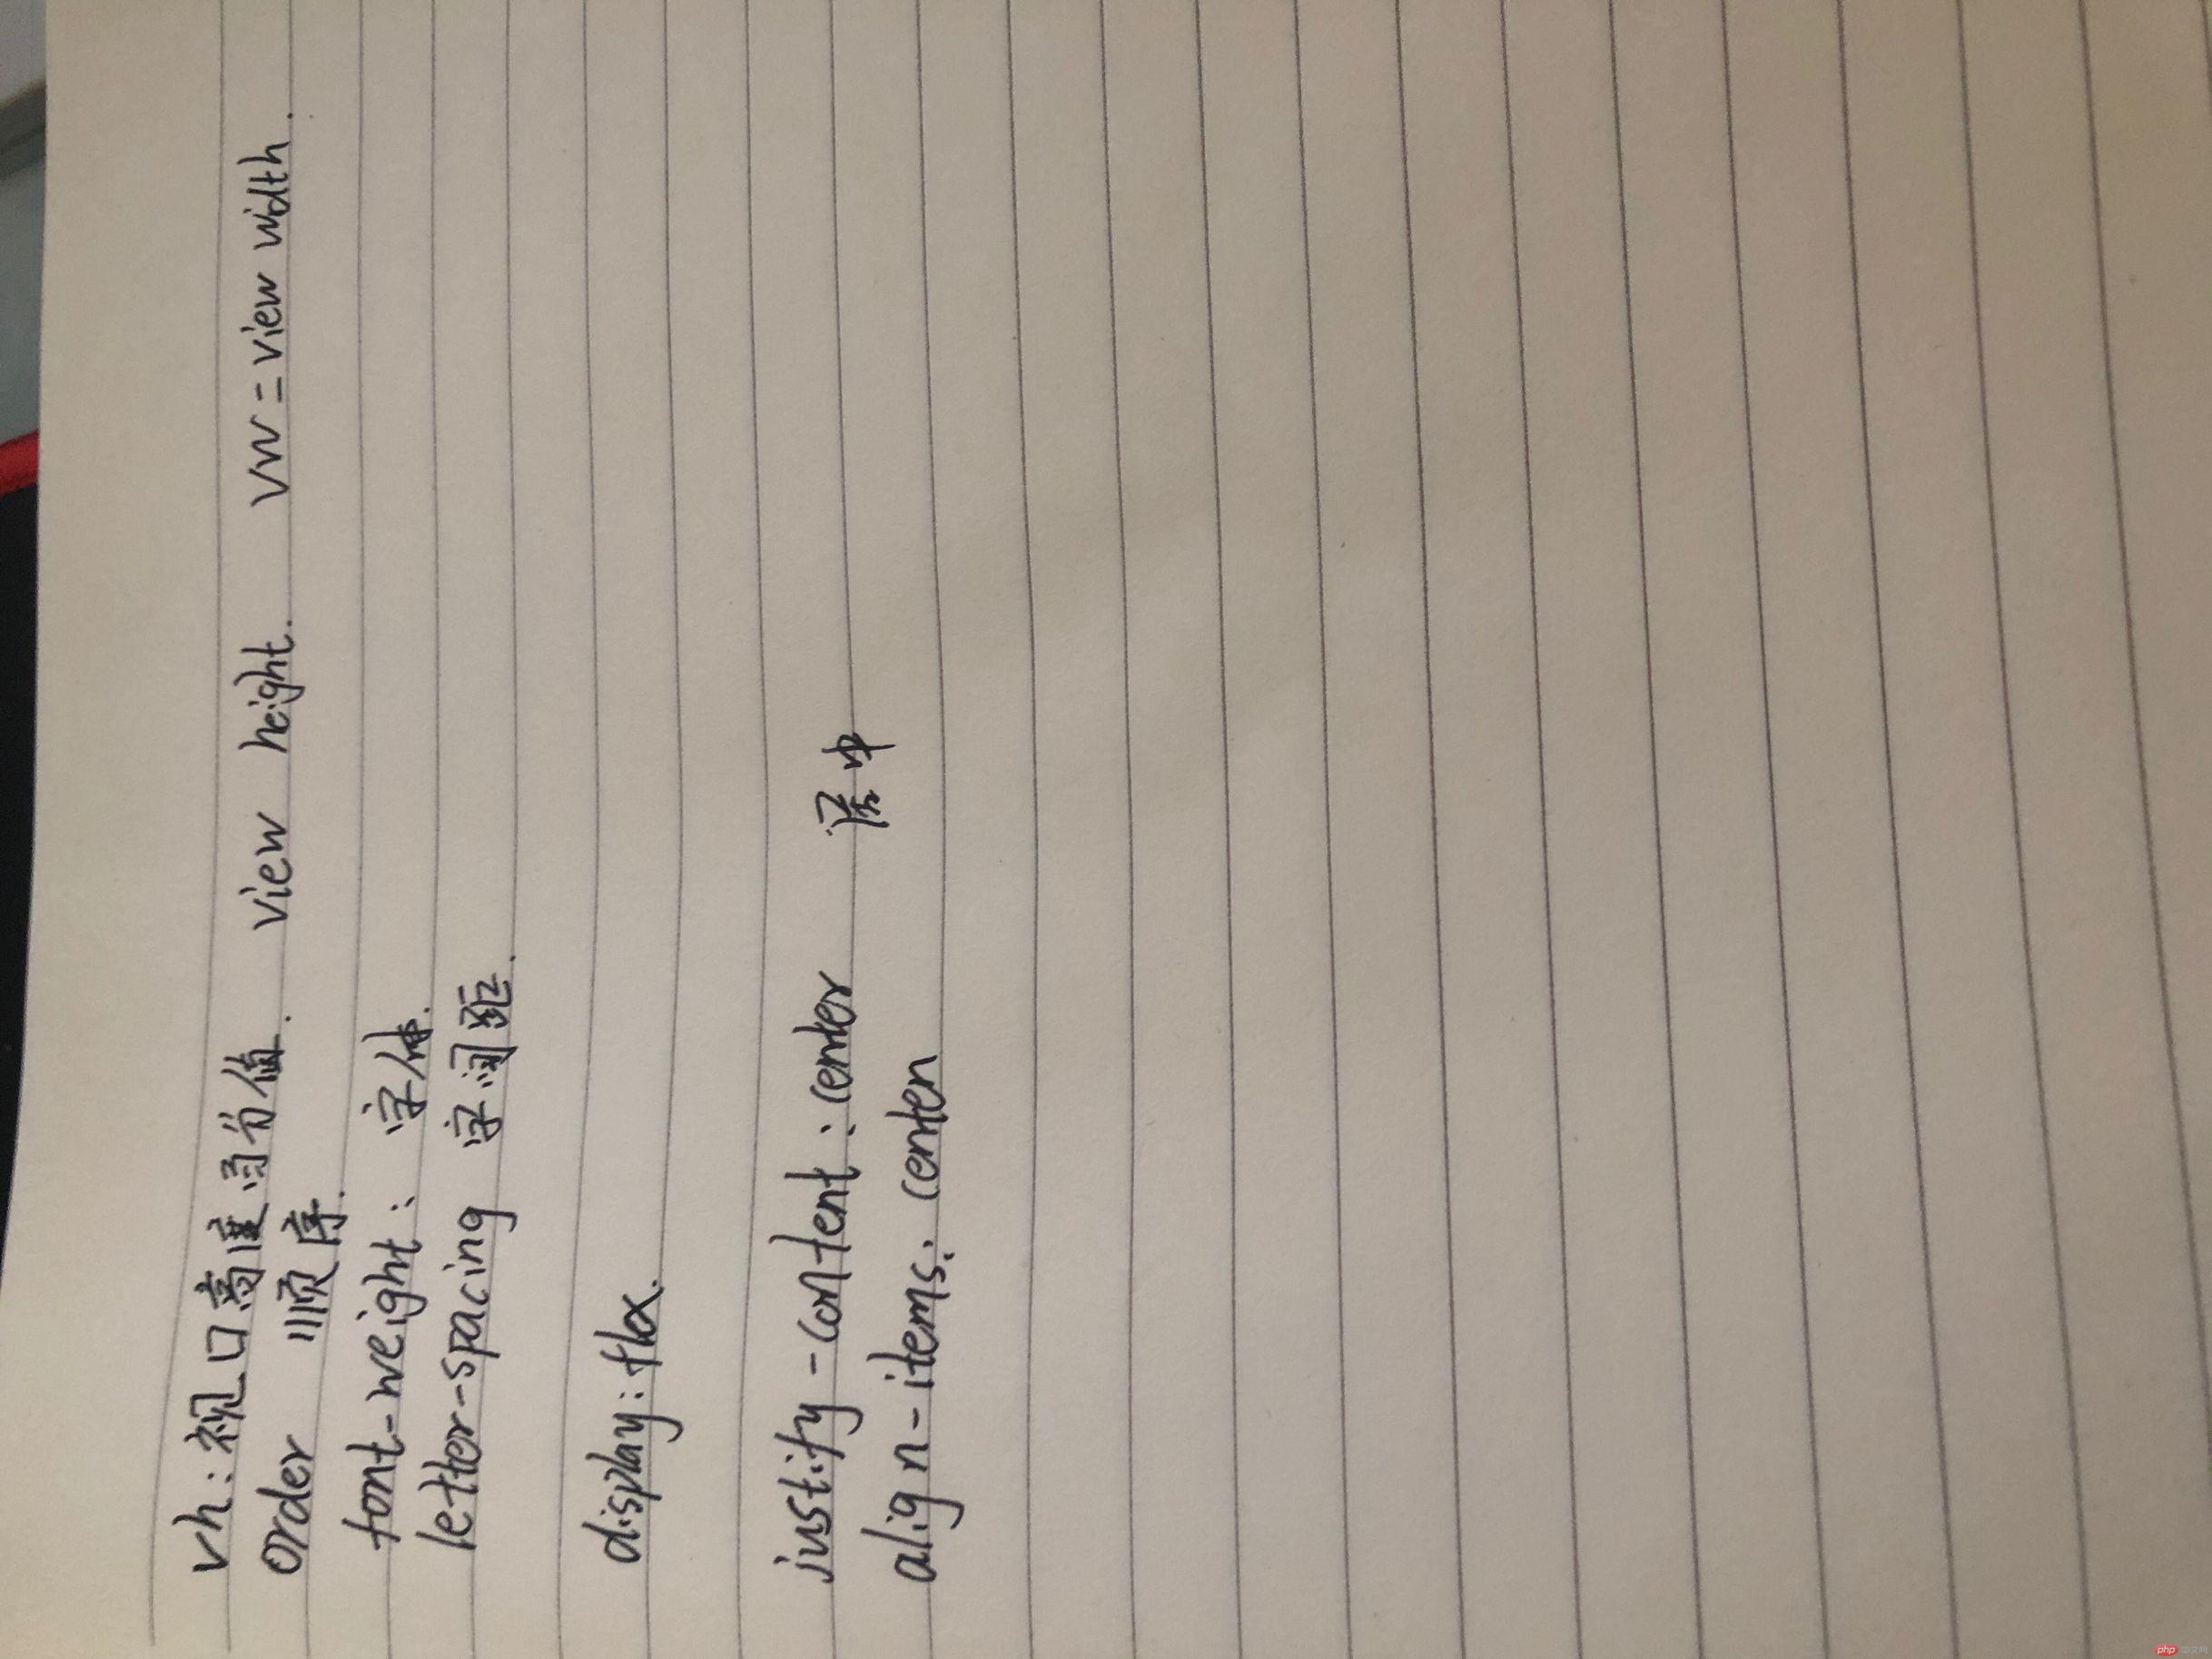 vh:视口高度百分值. view height. vw=view width.
order 顺序.
font-weight: 字体.
letter-spacing 字间距.
display:flex.
justify-content:center 居中
align-items:center
php中文网